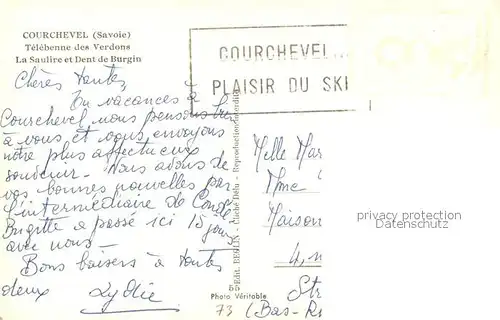 COURCHEVEL (Savoie)
Télébenne des Verdons
La Saulire et Dent de Burgin
COURCHEVEL...
PLAISIR DU SKI
Chères tantes,
En vacances à
Courchevel nous pensons
à vous et vous envoyons
notre plus affectueux
souvenir - Nous avons de
vos bonnes nouvelles par
l'intermédiaire de
Brigitte a passé ici 15 jours
avec nous -
Bons baisers à toutes
deux Lydie
Edit. BERLIN - Cliché Déla - Reproduction interdite
55
Photo. Véritable
73
Melle Mar
Mme
Maison
4, 
Str
(Bas-R
privacy protection
Datenschutz